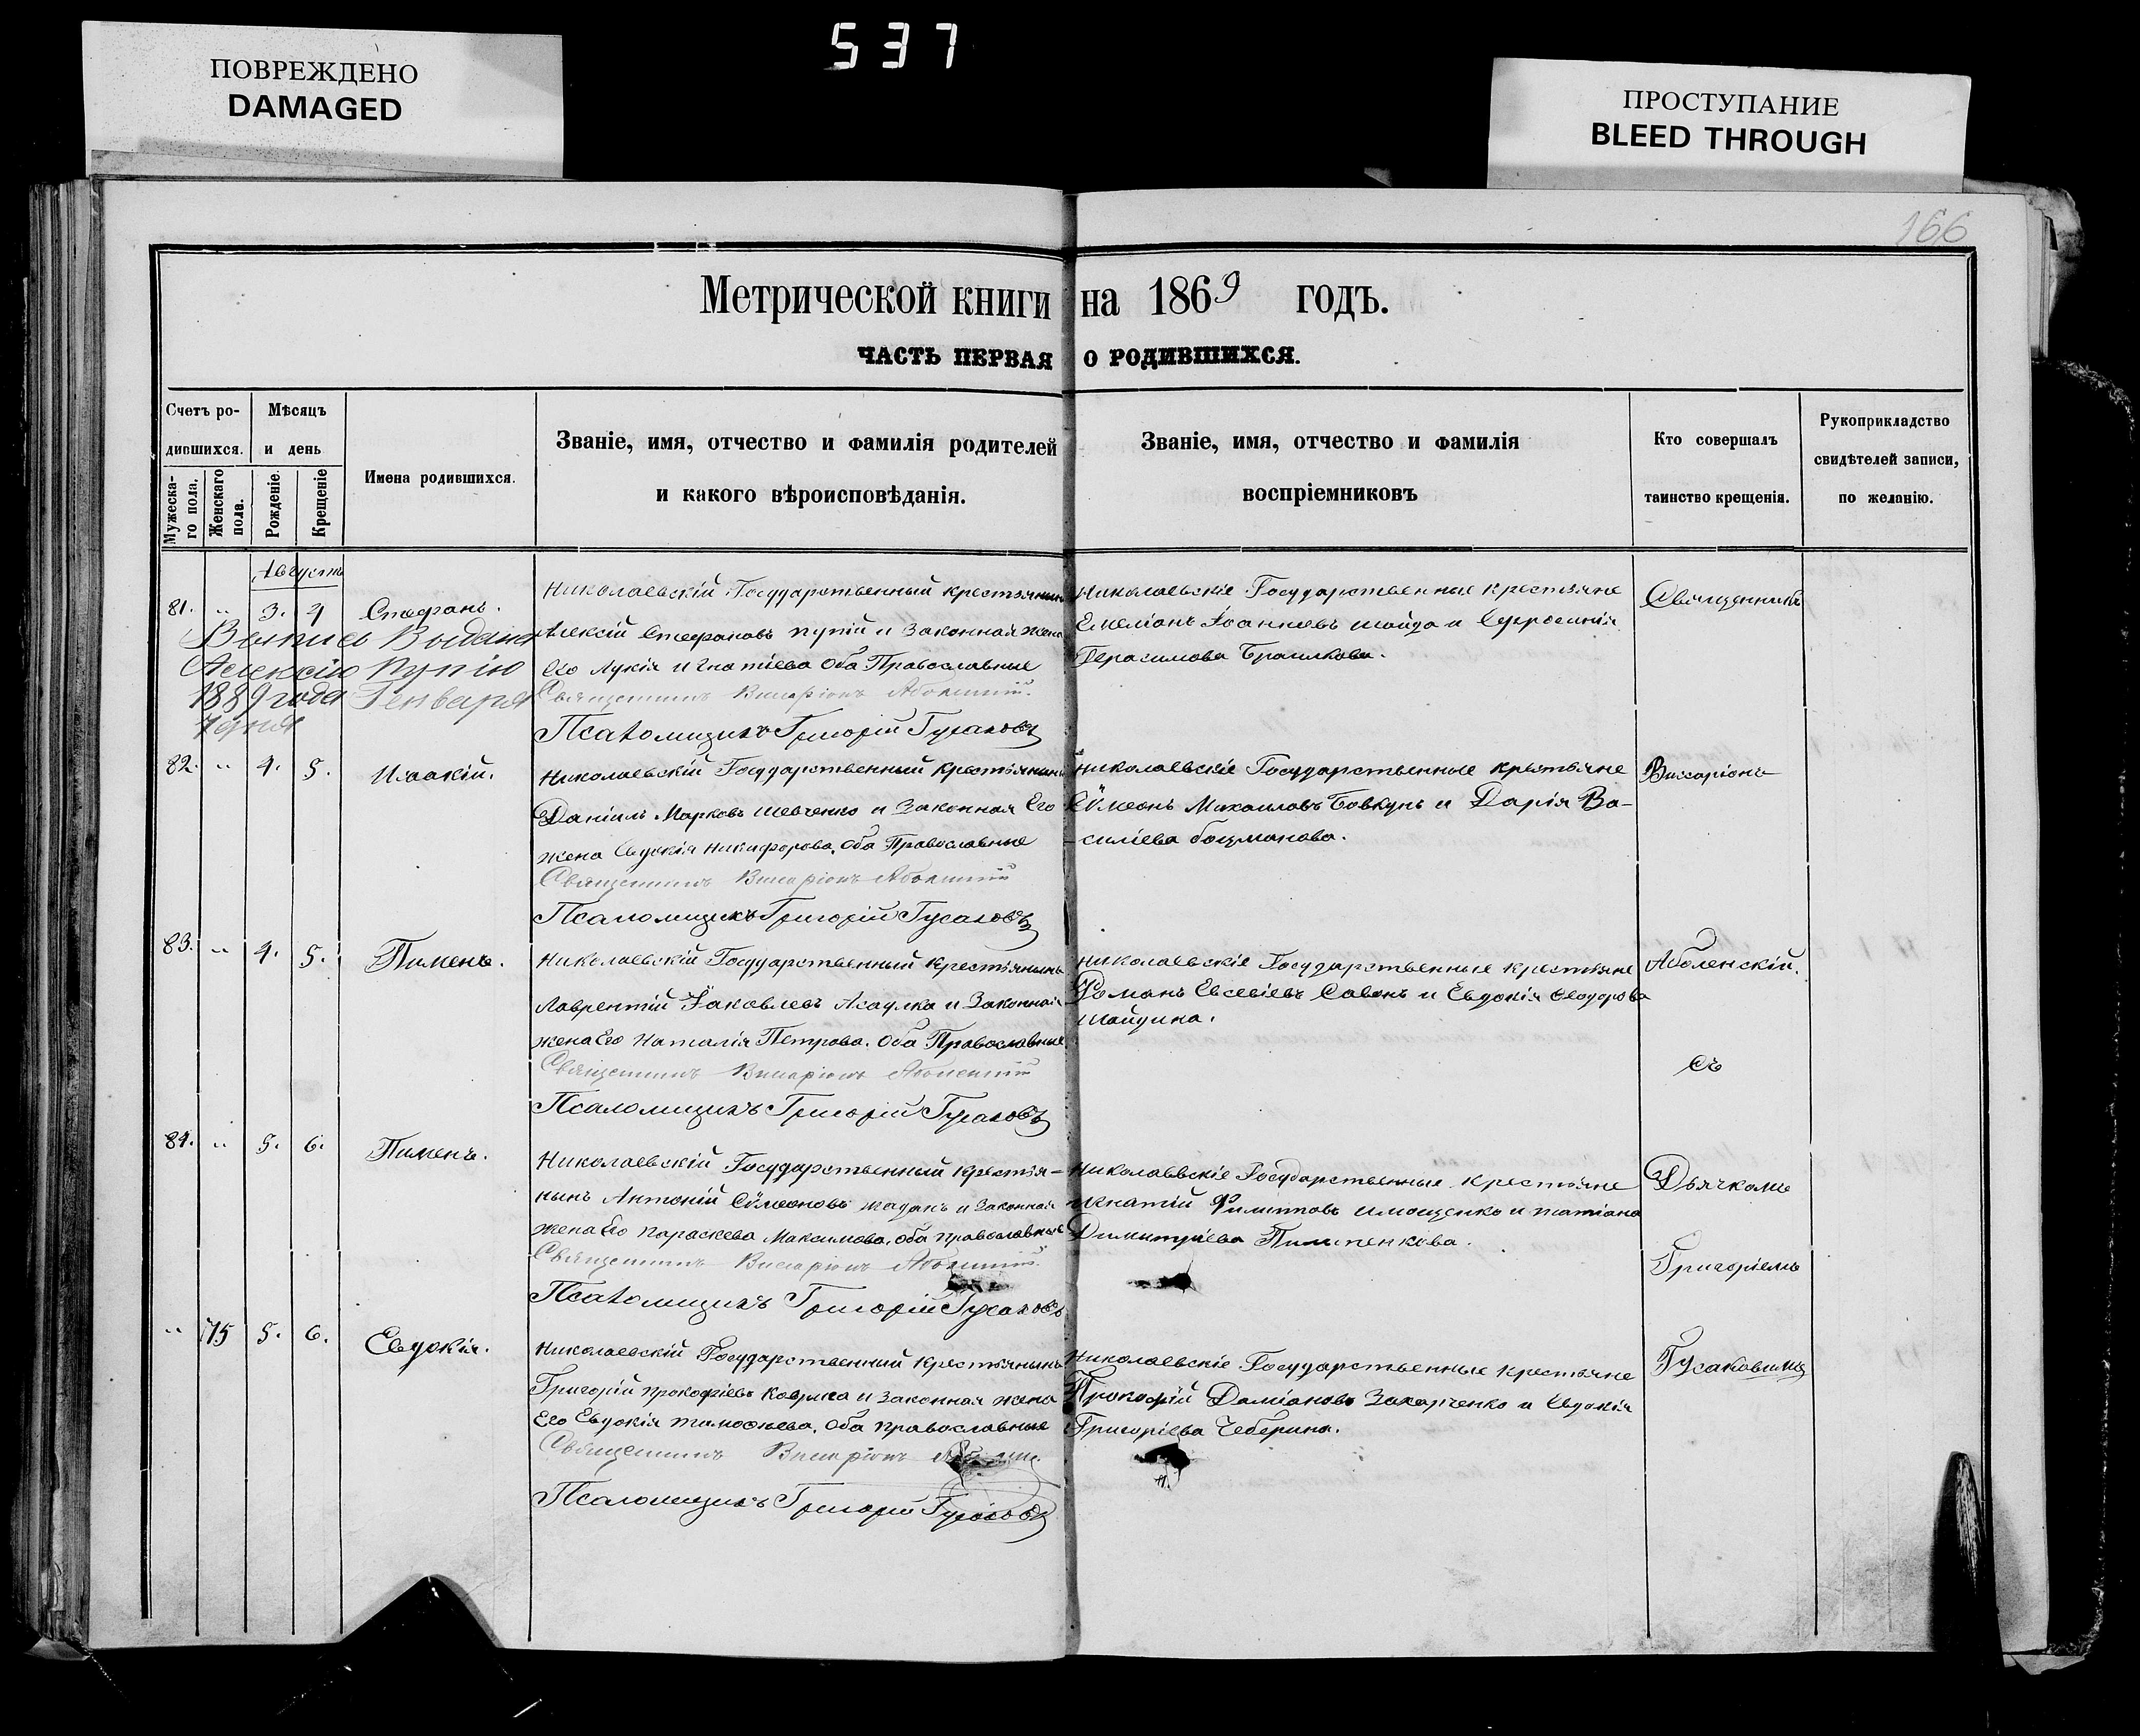 537
ПОВРЕЖДЕНО
DAMAGED
ПРОСТУПАНИЕ
BLEED THROUGH
166
Метрической книги на 1869 годъ.
ЧАСТЬ ПЕРВАЯ О РОДИВШИХСЯ.
Счетъ родившихся.
Мужескаго пола.
Женскаго пола.
Мѣсяцъ и день
Рожденіе.
Крещеніе
Имена родившихся.
Званіе, имя, отчество и фамилія родителей
и какого вѣроисповѣданія.
Званіе, имя, отчество и фамилія
воспріемниковъ
Кто совершалъ
таинство крещенія.
Рукоприкладство
свидѣтелей записи,
по желанію.
Августъ
81. " 3. 4 Стефанъ.
Выпись Выдана
Алексію Пупію
1889 года Генваря
7 дня
Николаевскій Государственный крестьянинъ
Алексій Стефановъ Пупій и Законная жена
Его Лукія Игнатіева Оба Православные
Священникъ Виссаріонъ Аболенскій.
Псаломщикъ Григорій Гусаковъ
Николаевскіе Государственные крестьяне
Емеліанъ Іоанновъ Шайда и Евфросинія
Герасимова Браилкова.
Священникъ
82. " 4. 5. Исаакій.
Николаевскій Государственный крестьянинъ
Даніилъ Марковъ Шевченко и Законная Его
жена Евдокія Никифорова, Оба Православные
Священникъ Виссаріонъ Аболенскій
Псаломщикъ Григорій Гусаковъ
Николаевскіе Государственные крестьяне
Сѵмеонъ Михаиловъ Бовкунъ и Дарія Ва-
силіева Боцманова.
Виссаріонъ
83. " 4. 5. Пименъ.
Николаевскій Государственный крестьянинъ
Лаврентій Іаковлевъ Асаулка и Законная
жена Его Наталія Петрова. Оба Православные
Священникъ Виссаріонъ Аболенскій
Псаломщикъ Григорій Гусаковъ
Николаевскіе Государственные крестьяне
Романъ Евсевіевъ Савонъ и Евдокія Ѳеодорова
Шайдина.
Аболенскій.
Съ
84. " 5. 6. Пименъ.
Николаевскій Государственный крестья-
нинъ Антоній Сѵмеоновъ Жаданъ и Законная
жена Его Параскева Максимова, оба православные
Священникъ Виссаріонъ Аболенскій.
Псаломщикъ Григорій Гусаковъ
Николаевскіе Государственные крестьяне
Игнатій Филипповъ Имощенко и Татіана
Димитріева Пилипенкова.
Дьячкомъ
Григоріемъ
" 75 5. 6. Евдокія.
Николаевскій Государственный крестьянинъ
Григорій Прокофіевъ Коврига и Законная жена
Его Евдокія Тимоѳеева, Оба православные
Священникъ Виссаріонъ
Псаломщикъ Григорій Гусаковъ
Николаевскіе Государственные крестьяне
Прокофій Даміановъ Захарченко и Евдокія
Григоріева Чеберина.
Гусаковымъ